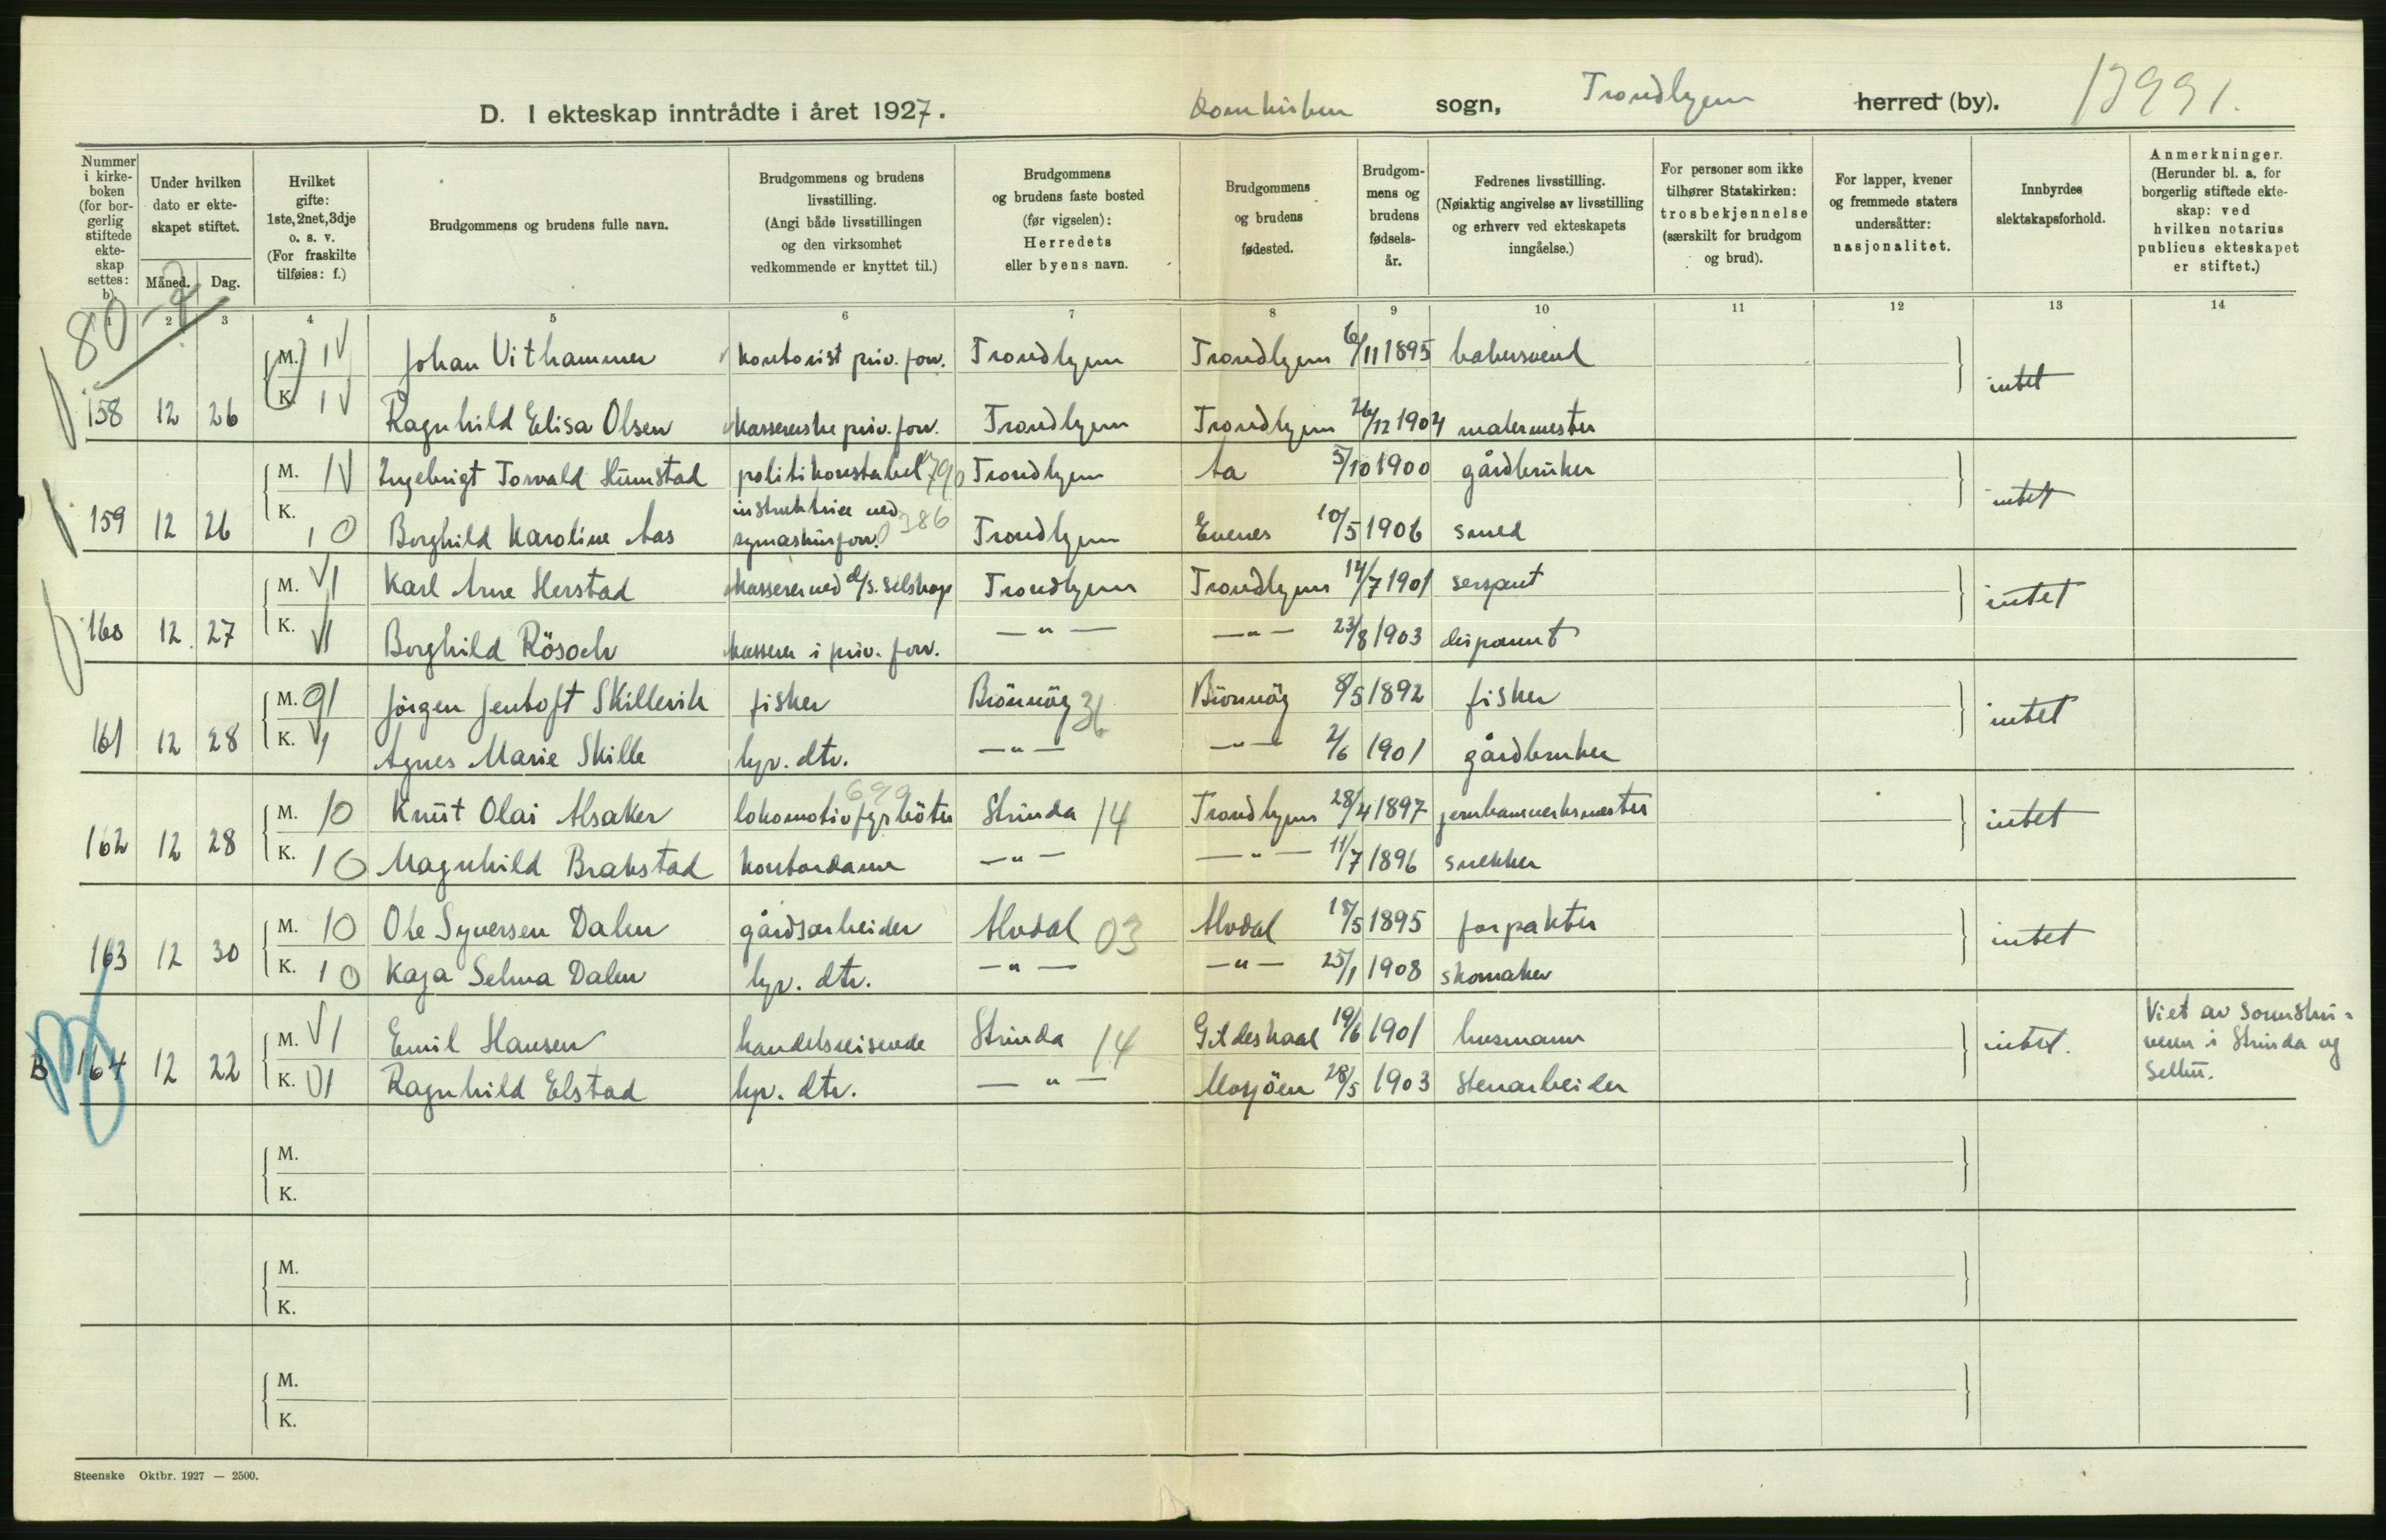 D. I ekteskap inntrådte i året 1927. Domkirken sogn, Trondhjem herred (by). 13991.
Nummer i kirkeboken (for borgerlig stiftede ekteskap settes: b).
Under hvilken dato er ekteskapet stiftet.
Måned. Dag.
Hvilket gifte: 1ste, 2net, 3dje o. s. v. (For fraskilte tilføies: f.)
Brudgommens og brudens fulle navn.
Brudgommens og brudens livsstilling. (Angi både livsstillingen og den virksomhet vedkommende er knyttet til.)
Brudgommens og brudens faste bosted (før vigselen): Herredets eller byens navn.
Brudgommens og brudens fødested.
Brudgommens og brudens fødselsår.
Fedrenes livsstilling. (Nøiaktig angivelse av livsstilling og erhverv ved ekteskapets inngåelse.)
For personer som ikke tilhører Statskirken: trosbekjennelse (særskilt for brudgom og brud).
For lapper, kvener og fremmede staters undersåtter: nasjonalitet.
Innbyrdes slektskapsforhold.
Anmerkninger. (Herunder bl. a. for borgerlig stiftede ekteskap: ved hvilken notarius publicus ekteskapet er stiftet.)
1 2 3 4 5 6 7 8 9 10 11 12 13 14
80
M. 1 Johan Vithammer kontorist priv. forr. Trondhjem Trondhjem 6/11 1895 bakersvend intet
158 12 26 K. 1 Ragnhild Elisa Olsen kassererske priv. forr. Trondhjem Trondhjem 26/12 1904 malermester
M. 1 Ingebrigt Torvald Humstad politikonstabel 790 Trondhjem Aa 5/10 1900 gårdbruker intet
159 12 26 K. 1 0 Borghild Karoline Aas instruktrice ved symaskinforr. 386 Trondhjem Evenes 10/5 1906 smed
M. 1 Karl Arne Herstad kasserer ved d/s. selskap Trondhjem Trondhjem 14/7 1901 sersjant intet
160 12 27 K. 1 Borghild Rösoch kasserer i priv. forr. — " — — " — 23/8 1903 disponent
M. 01 Jörgen Jentoft Skillevik fisker Brönnöy 36 Brönnöy 8/5 1892 fisker intet
161 12 28 K. 1 Agnes Marie Skille hjv. dtr. — " — — " — 2/6 1901 gårdbruker
M. 10 Knut Olai Alsaker lokomotivfyrböter 699 Strinda 14 Trondhjem 28/4 1897 jernbaneverksmester intet
162 12 28 K. 10 Magnhild Brakstad kontordame — " — — " — 11/7 1896 snekker
M. 10 Ole Syversen Dalen gårdsarbeider Alvdal 03 Alvdal 18/5 1895 forpakter intet
163 12 30 K. 10 Kaja Selma Dalen hjv. dtr. — " — — " — 25/1 1908 skomaker
M. 1 Emil Hansen handelsreisende Strinda 14 Gildeskaal 19/6 1901 husmann intet. Viet av sorenskriveren i Strinda og Selbu.
B 164 12 22 K. 01 Ragnhild Elstad hjv. dtr. — " — Mosjöen 28/5 1903 stenarbeider
M.
K.
M.
K.
M.
K.
Steenske Oktbr. 1927 — 2500.